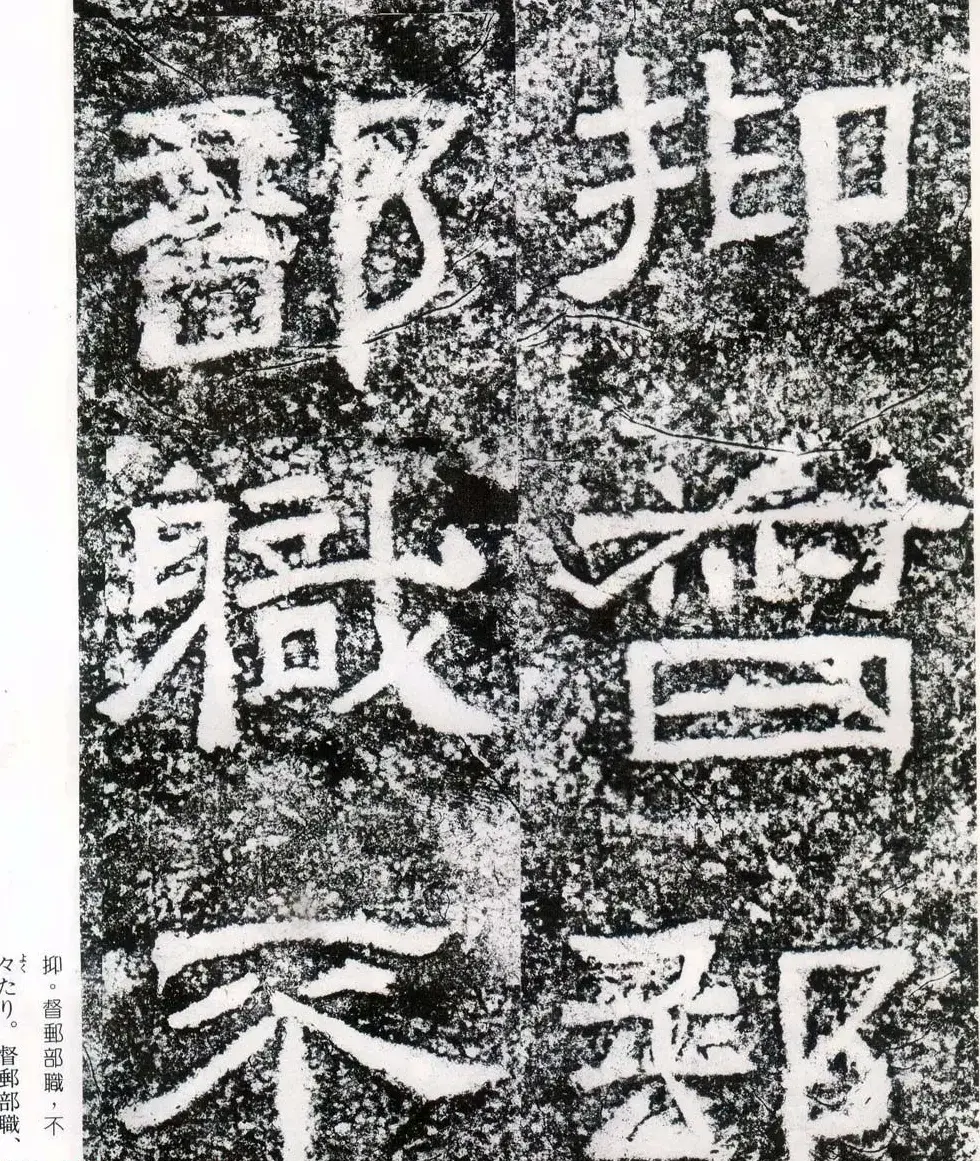 抑督郵
部職不
抑。督郵部職，不
々たり。督郵部職、
よく